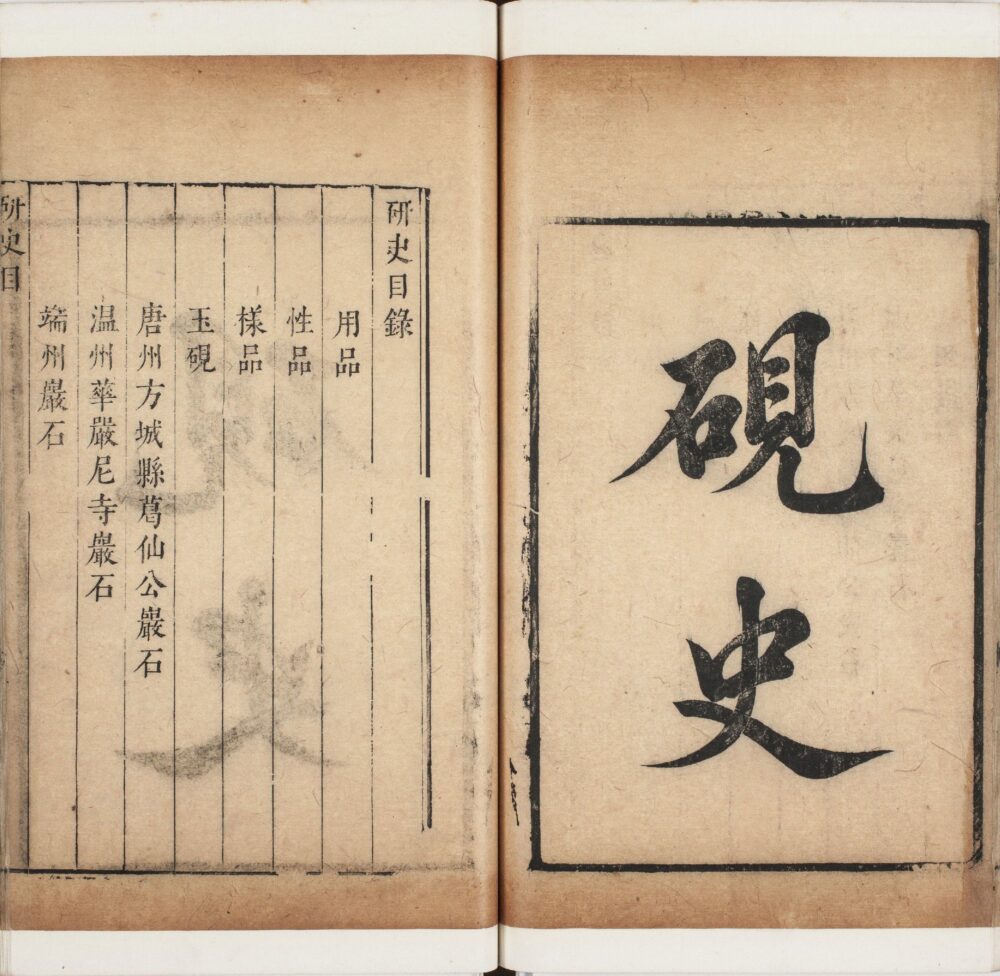 硯史
研史目錄
用品
性品
樣品
玉硯
唐州方城縣葛仙公巖石
温州華嚴尼寺巖石
端州巖石
研史目